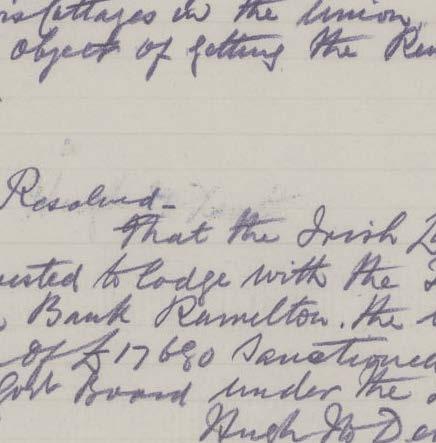 Cottages in the Union
object of getting the
Resolved -
That the Irish
to lodge with the
Bank Ramelton. the
of £17680 Sanctioned
Board under the
Hugh